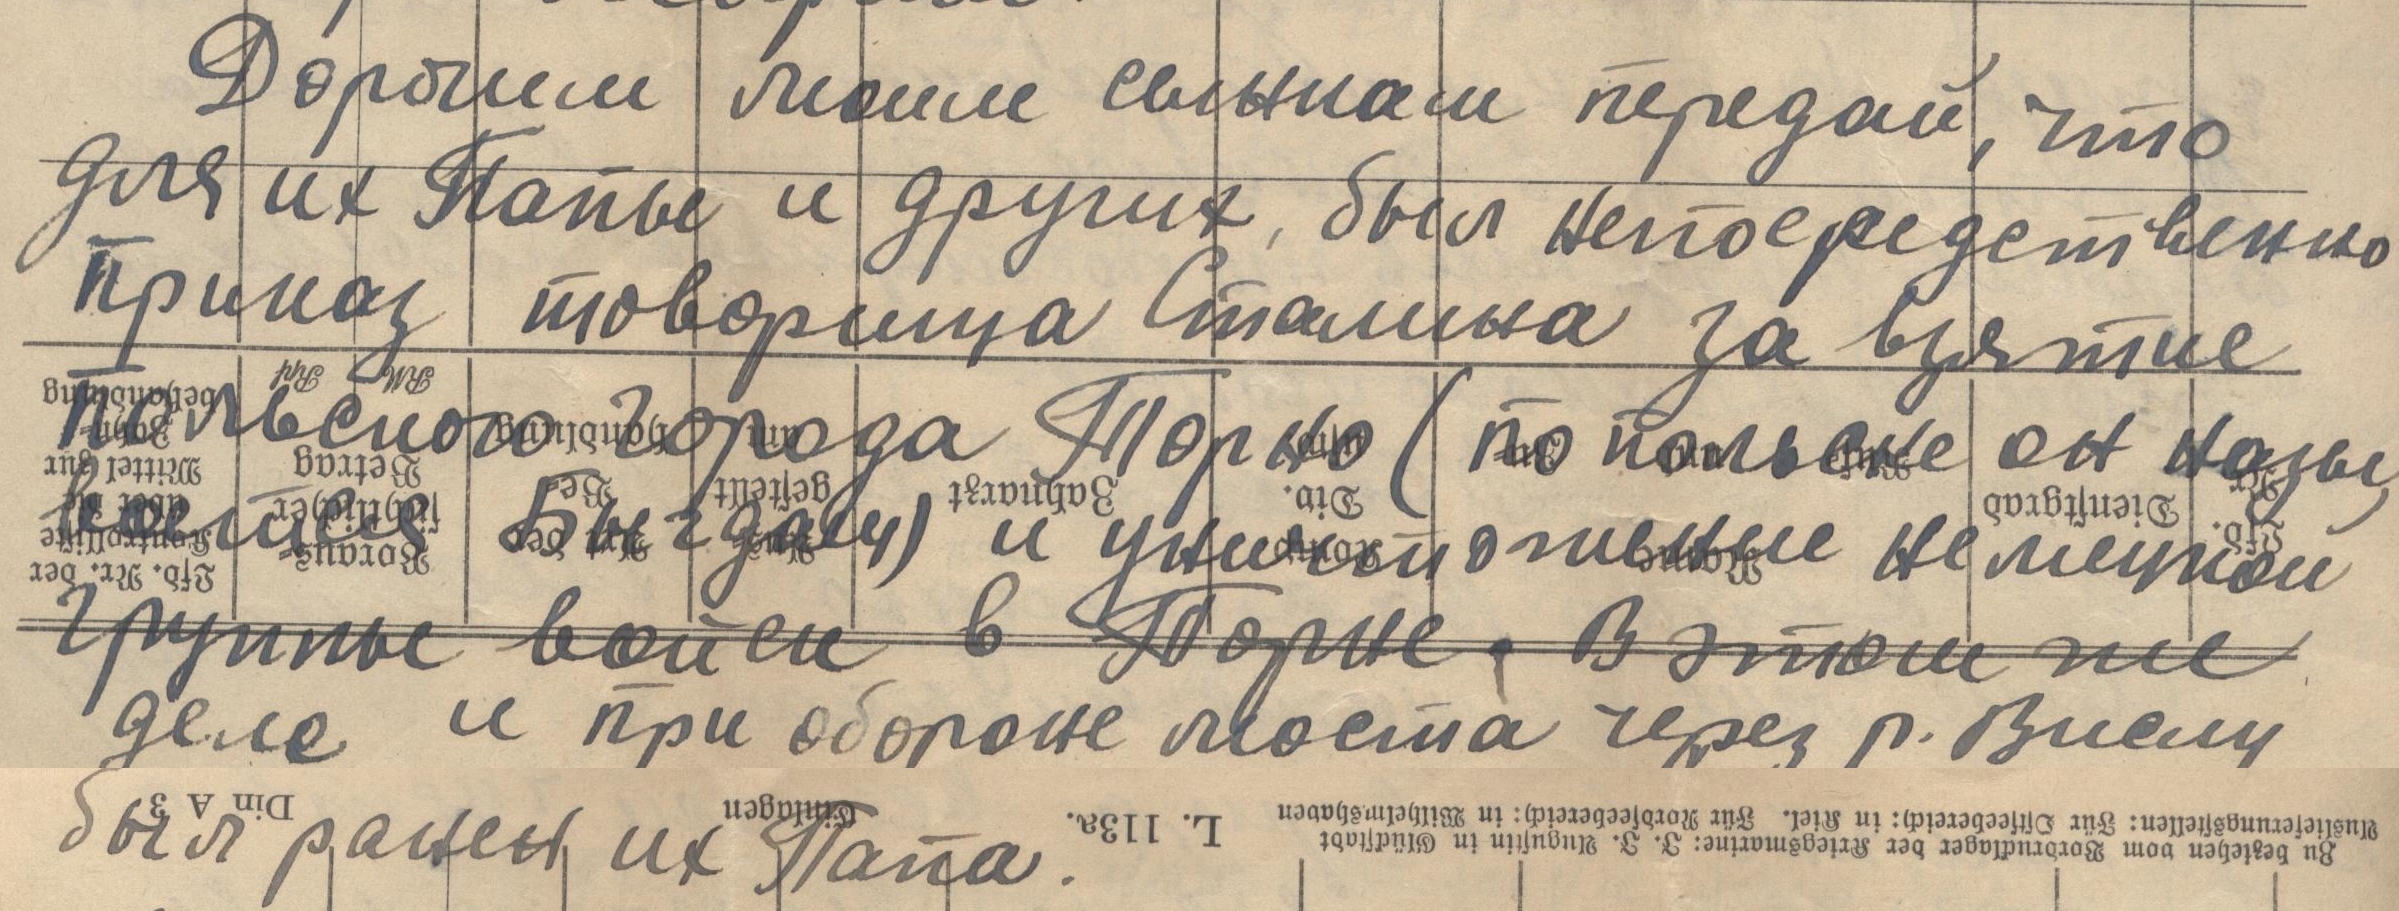 Дорогим моим сынкам передай, что
для их Папы и других, был непосредственно
Приказ товарища Сталина за взятие
польского города Торно (по польске он назы
вается Быгдощ) и уничтожение немецкой
группы войск в Торне. В этом же
деле и при обороне моста через р. Вислу
был ранен их Папа.
Lfd. Nr.
Dienstgrad
Name
Komp.
Div.
Zahnarzt
Aus-
gestellt
am
Art der
Be-
handlung
Voraus-
sichtlicher
Betrag
RM Rpf
Lfd. Nr. der
Kontrolliste
über die
Mittel zur
Zahn-
behandlung
Zu beziehen vom Vordrucklager der Kriegsmarine: J. J. Augustin in Glückstadt
Auslieferungsstellen: Für Ostseebereich: in Kiel. Für Nordseebereich: in Wilhelmshaven
L. 113a.
Einlagen
Din A 3